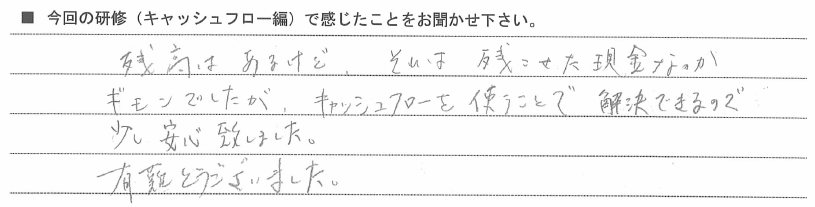 ■ 今回の研修（キャッシュフロー編）で感じたことをお聞かせ下さい。
残高は あるけど、それは 残こせた現金なのか
ギモンでしたが、キャッシュフローを 使うことで 解決できるので
少し 安心 致しました。
有難とうございました。